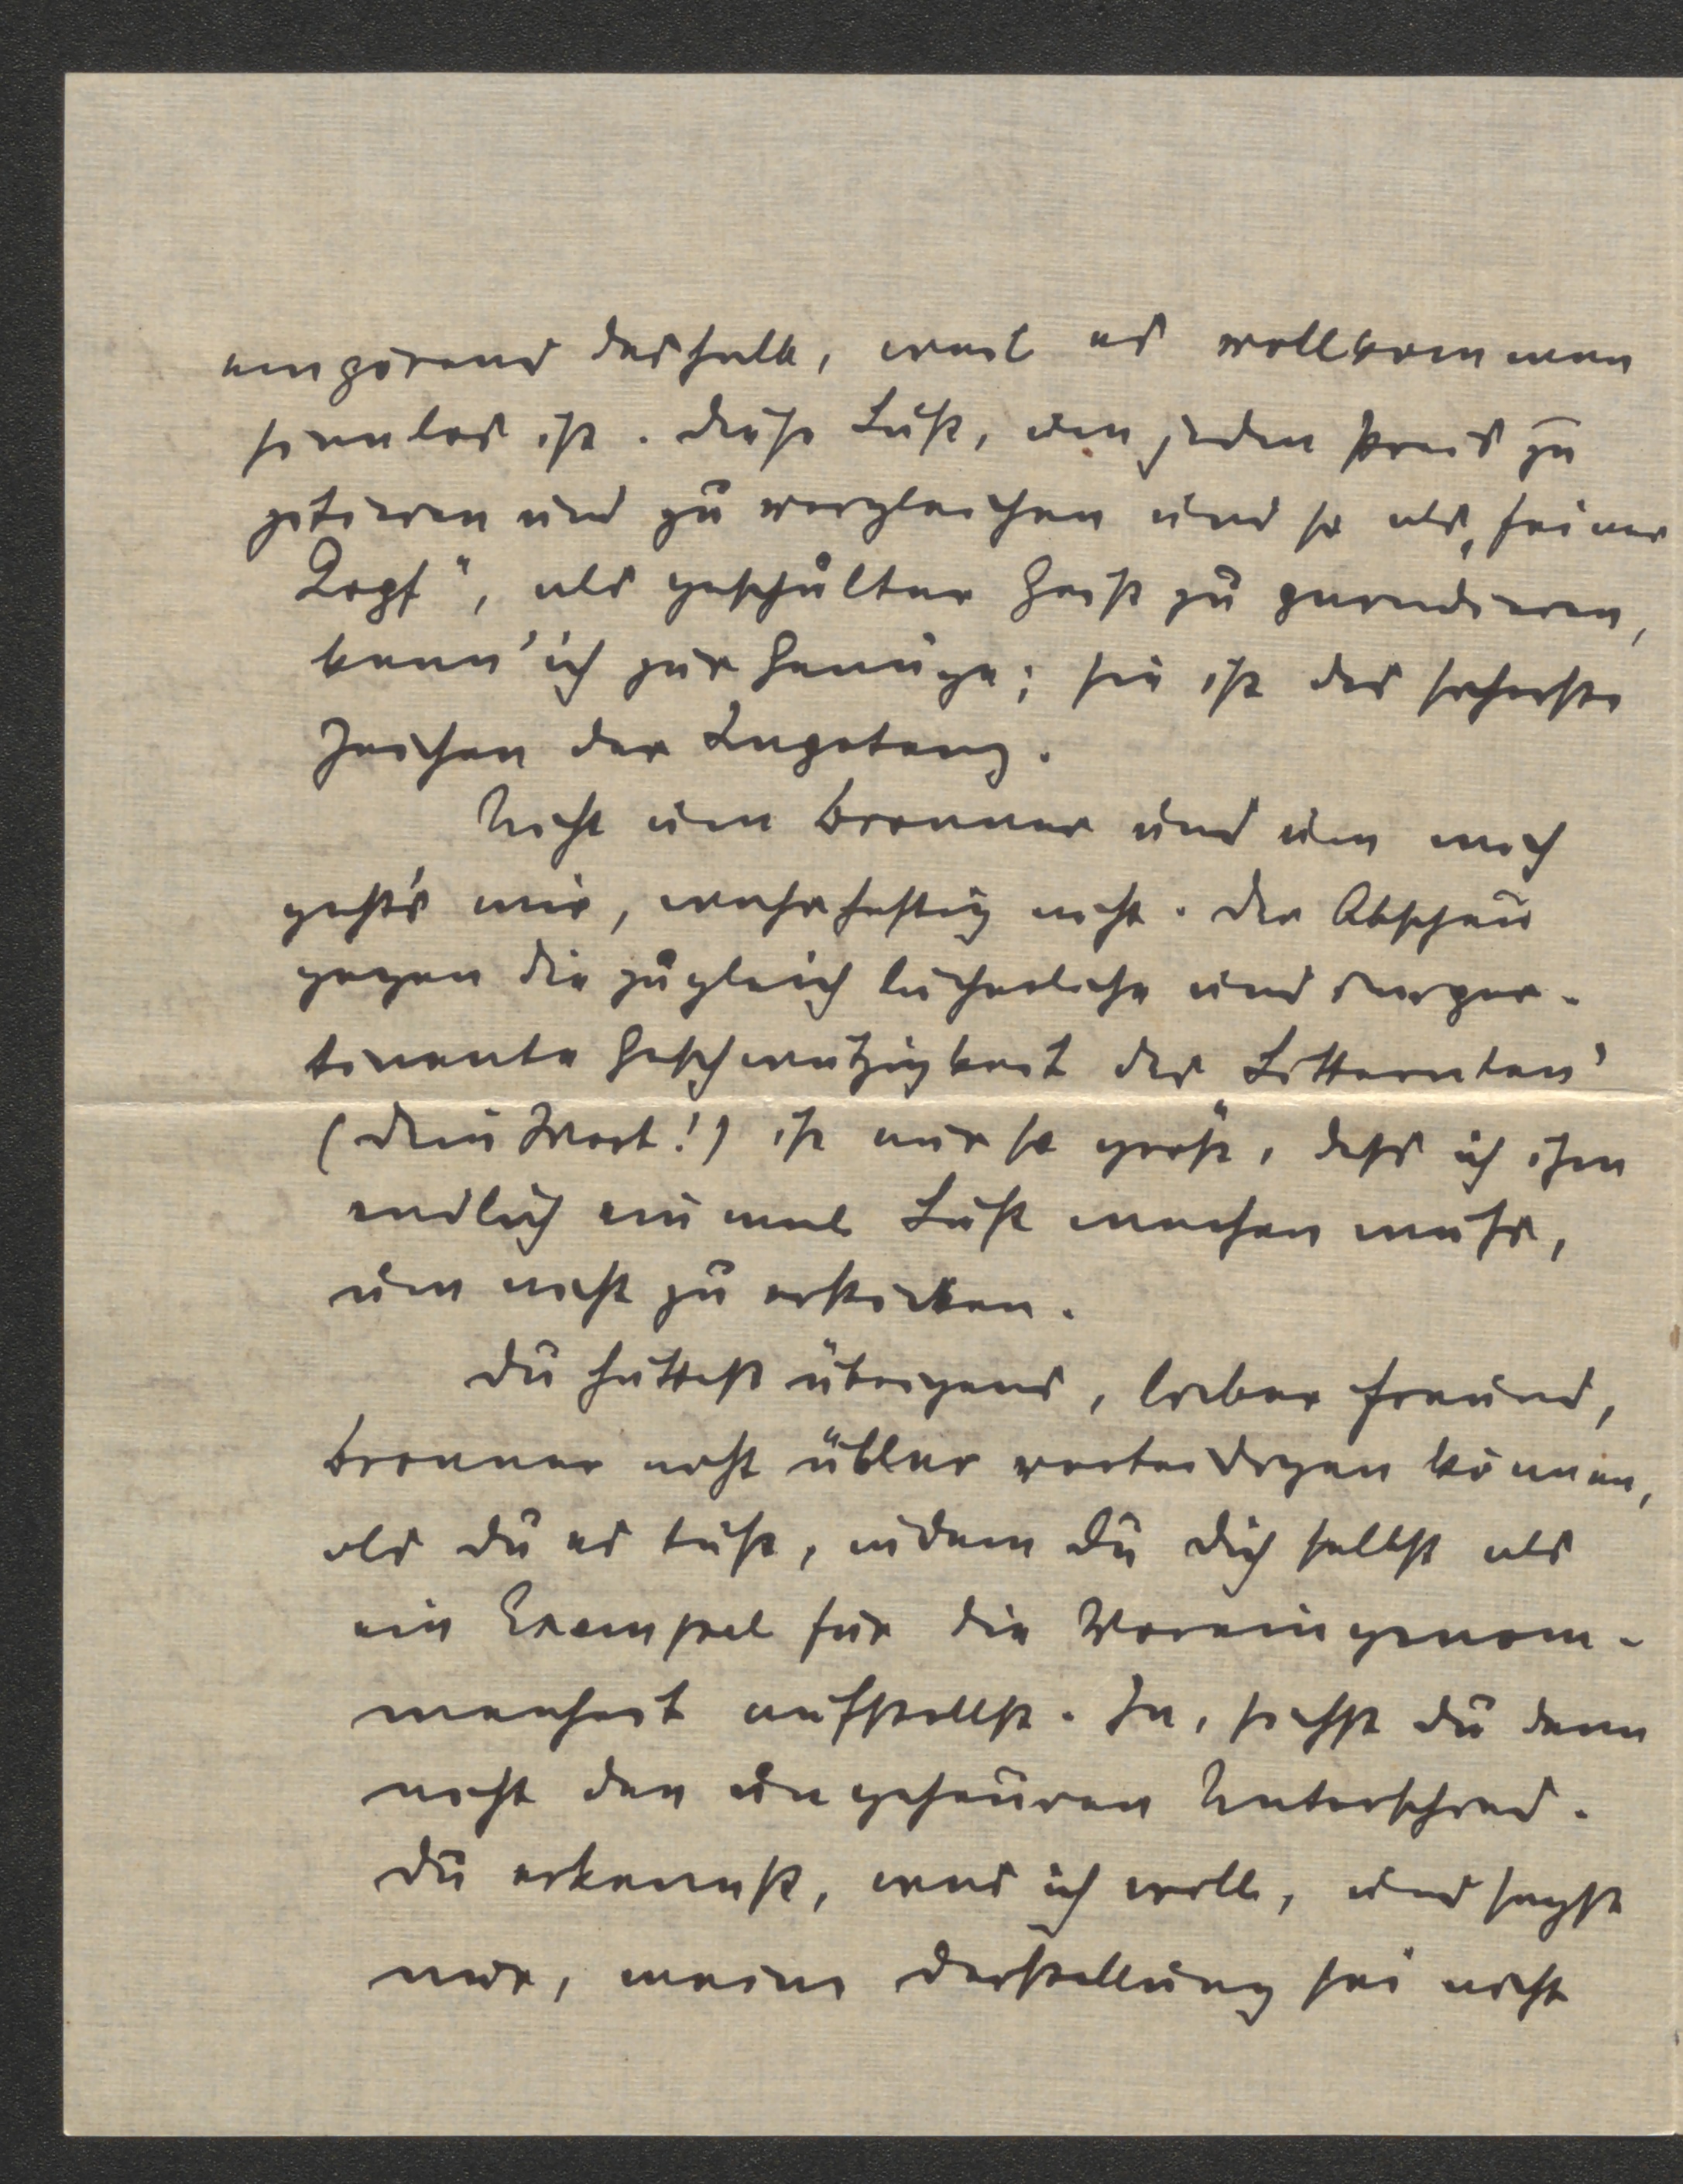 empörend deshalb, weil es vollkommen
sinnlos ist. Diese Lust, um jeden Preis zu
zitieren und zu vergleichen und so als „feiner
Kopf“, als geschulter Geist zu paradieren,
kenn' ich zur Genüge; sie ist das sicherste
Zeichen der Impotenz.
Nicht um Brenner und um mich
geht's mir, wahrhaftig nicht. Der Abscheu
gegen die zugleich lächerliche und imper-
tinente Geschwätzigkeit des Litteraten'
(Dein Wort!) ist nur so groß, dass ich ihm
endlich einmal Luft machen muss,
um nicht zu ersticken.
Du hättest übrigens, lieber Freund,
Brenner nicht übler verteidigen können,
als Du es tust, indem Du Dich selbst als
ein Exempel für die Voreingenom-
menheit aufstellst. Ja, siehst Du denn
nicht den ungeheuren Unterschied.
Du erkennst, was ich will, und sagst
mir, meine Darstellung sei nicht